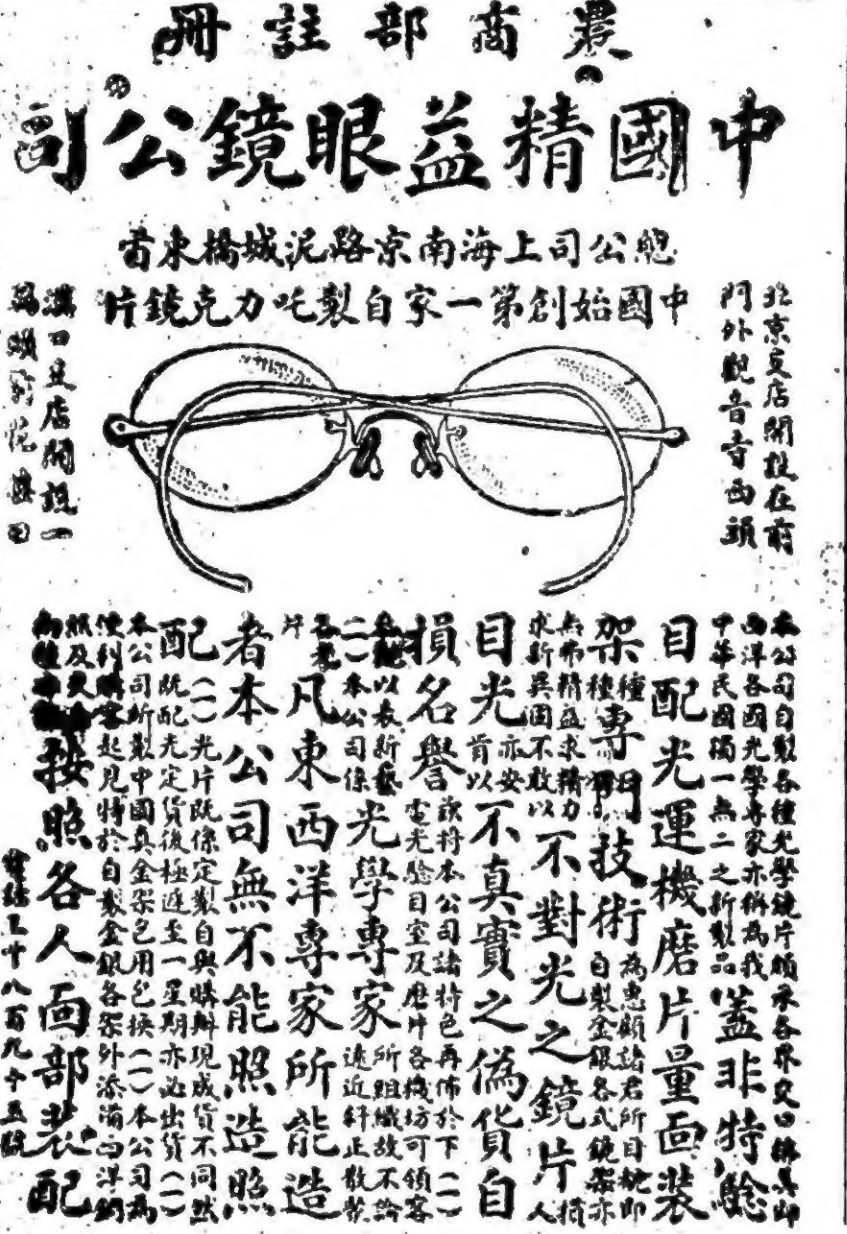 農商部註冊
中國精益眼鏡公司
總公司上海南京路泥城橋東首
中國始創第一家自製吒力克鏡片
北京支店開設在前
門外觀音寺西頭
漢口支店開設一
碼頭
本公司自製各種光學鏡片頗承各界交口稱其即
西洋各國光學專家亦稱為我
中華民國獨一無二之新製品
蓋非特驗
目配光運機磨片量面裝
架種種專門技術
為惠顧諸君所目覩即
自製金銀各式鏡架亦
無弗精益求精力
求新異固不敢以
不對光之鏡片
損人
目光
亦安
肯以
不真實之偽貨自
損名譽
茲將本公司諸特色再佈於下(一)
電光驗目室及磨片各機坊可領客
以表新藝
(二)本公司係
光學專家
所組織故不論
遠近斜正散光
各光
片
凡東西洋專家所能造
者本公司無不能照造照
配
(一)光片既係定製自與購辦現成貨不同然
既配光定貨後極遲至一星期亦必出貨(一)
本公司所製中國真金架包用包換(一)本公司為
便利購客起見特於自製金銀各架外添備西洋鋼
按照各人面部裝配
八百九十五號